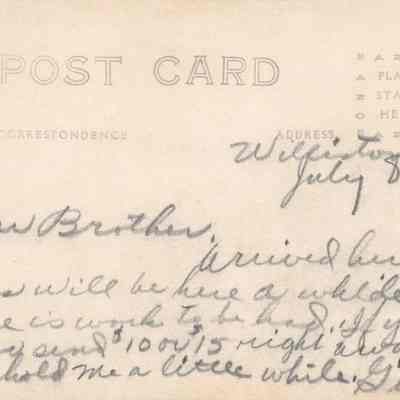 POST CARD
CORRESPONDENCE
ADDRESS
PLA
STA
HE
Williston
July 8
Brother,
arrived her
will be here a while
is work to be had. If y
send $10 or $15 right awa
hold me a little while. G